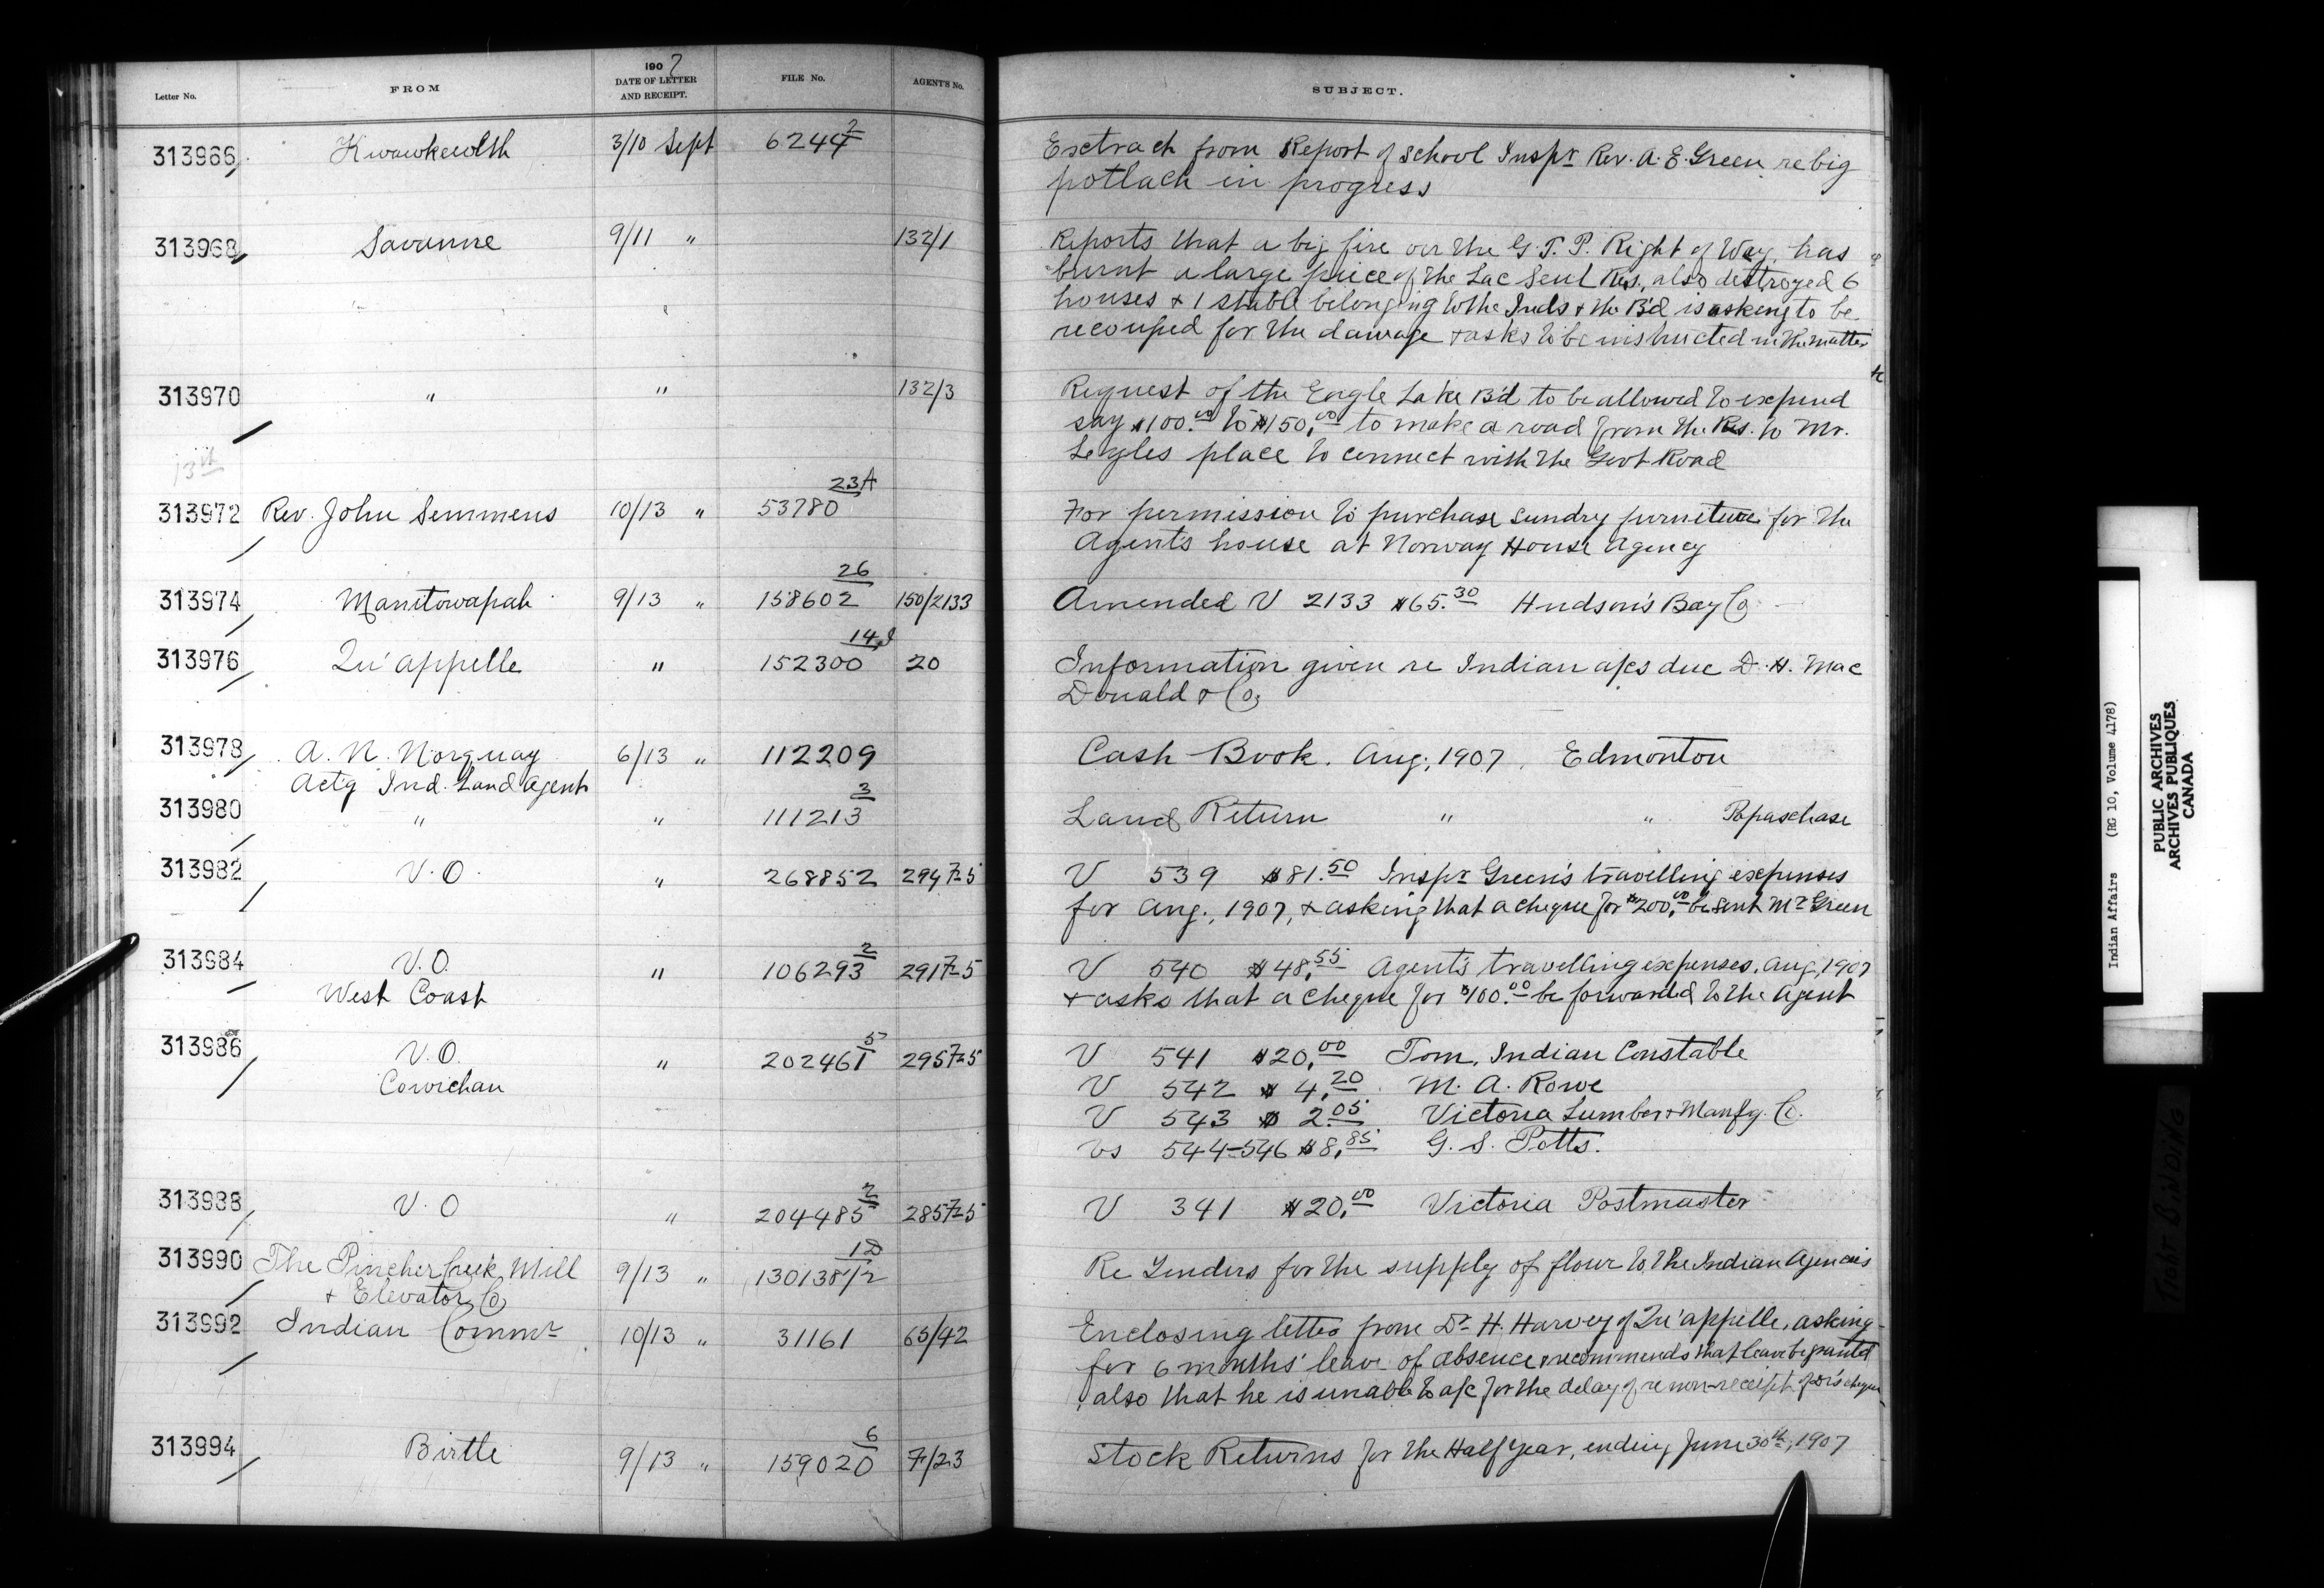 Letter No.
FROM
1907
DATE OF LETTER
AND RECEIPT.
FILE No.
AGENT'S No.
SUBJECT.
313966 Kwawkewlth 3/10 Sept 6244 2 Extract from Report of School Inspr Rev. A. E. Green re big
potlach in progress
313968 Savanne 9/11 " 132/1 Reports that a big fire on the G. T. P. Right of Way, has
burnt a large piece of the Lac Seul Res., also destroyed 6
houses & 1 stable belonging to the Inds & the B'd is asking to be
recouped for the damage & asks to be instructed in the matter
313970 " " 132/3 Request of the Eagle Lake B'd to be allowed to expend
say $100.00 to $150.00 to make a road from the Res. to Mr.
place to connect with the Govt Road
13th
313972 Rev. John Semmens 10/13 " 53780 23A For permission to purchase sundry furniture for the
Agent's house at Norway House Agency
313974 Manitowapah 9/13 " 158602 26 150/2133 Amended V 2133 $65.30 Hudson's Bay Co
313976 Qu'appelle " 152300 14 20 Information given re Indian a/cs due D. H. Mac
Donald & Co,
313978 A. N. Norquay 6/13 " 112209 Cash Book. Aug, 1907, Edmonton
Actg Ind. Land Agent
313980 " " 111213 3 Land Return " " Papaschase
313982 V.O. " 268852 294 7-5 V 539 $81.50 Inspr Green's travelling expenses
for Aug., 1907, & asking that a cheque for $200.00 be sent Mr Green
313984 V.O. " 106293 2 291 7-5 V 540 $48.55 Agent's travelling expenses, Aug, 1907
West Coast & asks that a cheque for $100.00 be forwarded to the Agent
313986 V.O. " 202461 5 295 7-5 V 541 $20.00 Tom, Indian Constable
Cowichan V 542 $4.20 M. A. Rowe
V 543 $2.05 Victoria Lumber & Manfg. Co.
Vs 544-546 $8.85 G. S. Potts.
313988 V.O " 204485 2 285 7-5 V 341 $20.00 Victoria Postmaster
313990 The Pincher Creek Mill 9/13 " 130138 1/2 1D Re Tenders for the supply of flour to the Indian Agencies
& Elevator Co
313992 Indian Commr 10/13 " 31161 65/42 Enclosing letter from Dr H. Harvey of Qu'appelle, asking
for 6 months' leave of absence & recommends that leave be granted
also that he is unable to a/c for the delay of re non-receipt of Dr's cheque
313994 Birtle 9/13 " 159020 6 7/23 Stock Returns for the Half Year, ending June 30th, 1907
Indian Affairs (RG 10, Volume 4178)
PUBLIC ARCHIVES
ARCHIVES PUBLIQUES
CANADA
TIGHT BINDING